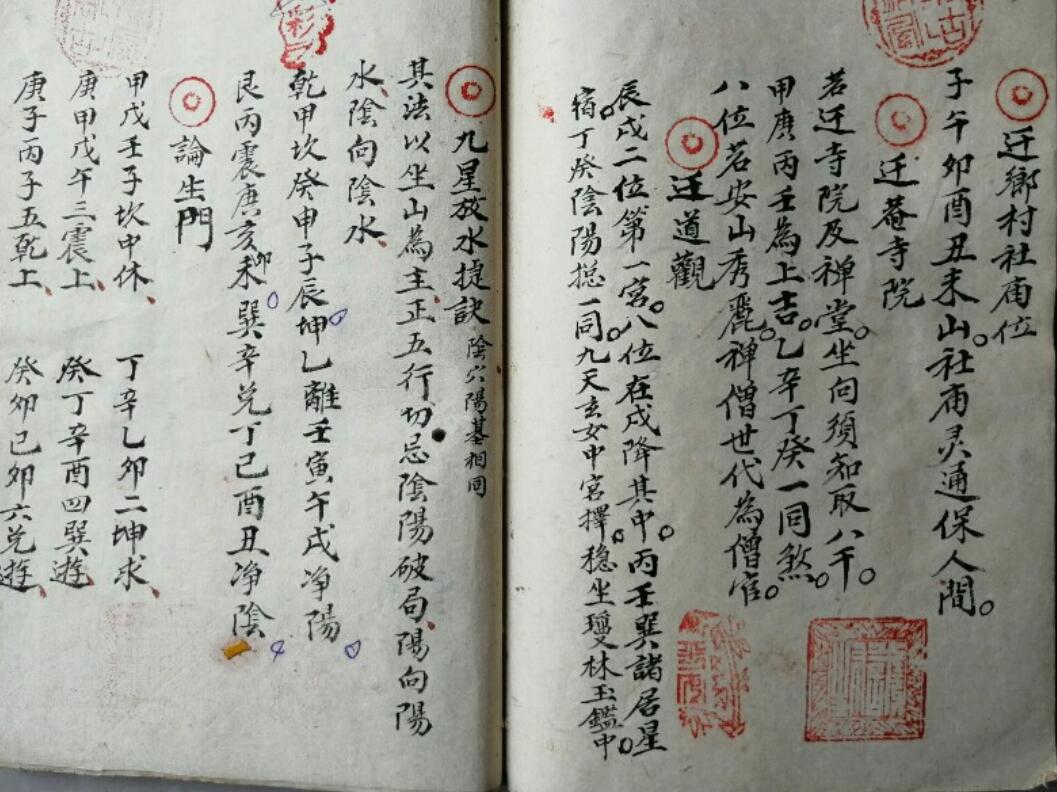 迁鄉村社庙位
子午卯酉丑未山。社庙灵通保人間。
迁菴寺院
若迁寺院及禅堂。坐向須知取八干。
甲庚丙壬為上吉。乙辛丁癸一同煞。
八位若安山秀麗。禅僧世代為僧官。
迁道觀
辰戌二位第一宮。八位在戌降其中。丙壬巽諸居星
宿丁癸陰陽捴一同。九天玄女中宮擇。穏坐瓊林玉鑑中。
九星放水捷訣 陰穴陽基相同
其法以坐山為主、正五行切忌陰陽破局、陽向陽
水、陰向陰水、
乾甲坎癸申子辰坤乙離壬寅午戌净陽
艮丙震庚亥卯未巽辛兑丁己酉丑净陰
論生門
甲戊壬子坎中休、 丁辛乙卯二坤求、
庚甲戊午三震上、 癸丁辛酉四巽遊、
庚子丙子五乾上、 癸卯己卯六兑遊、